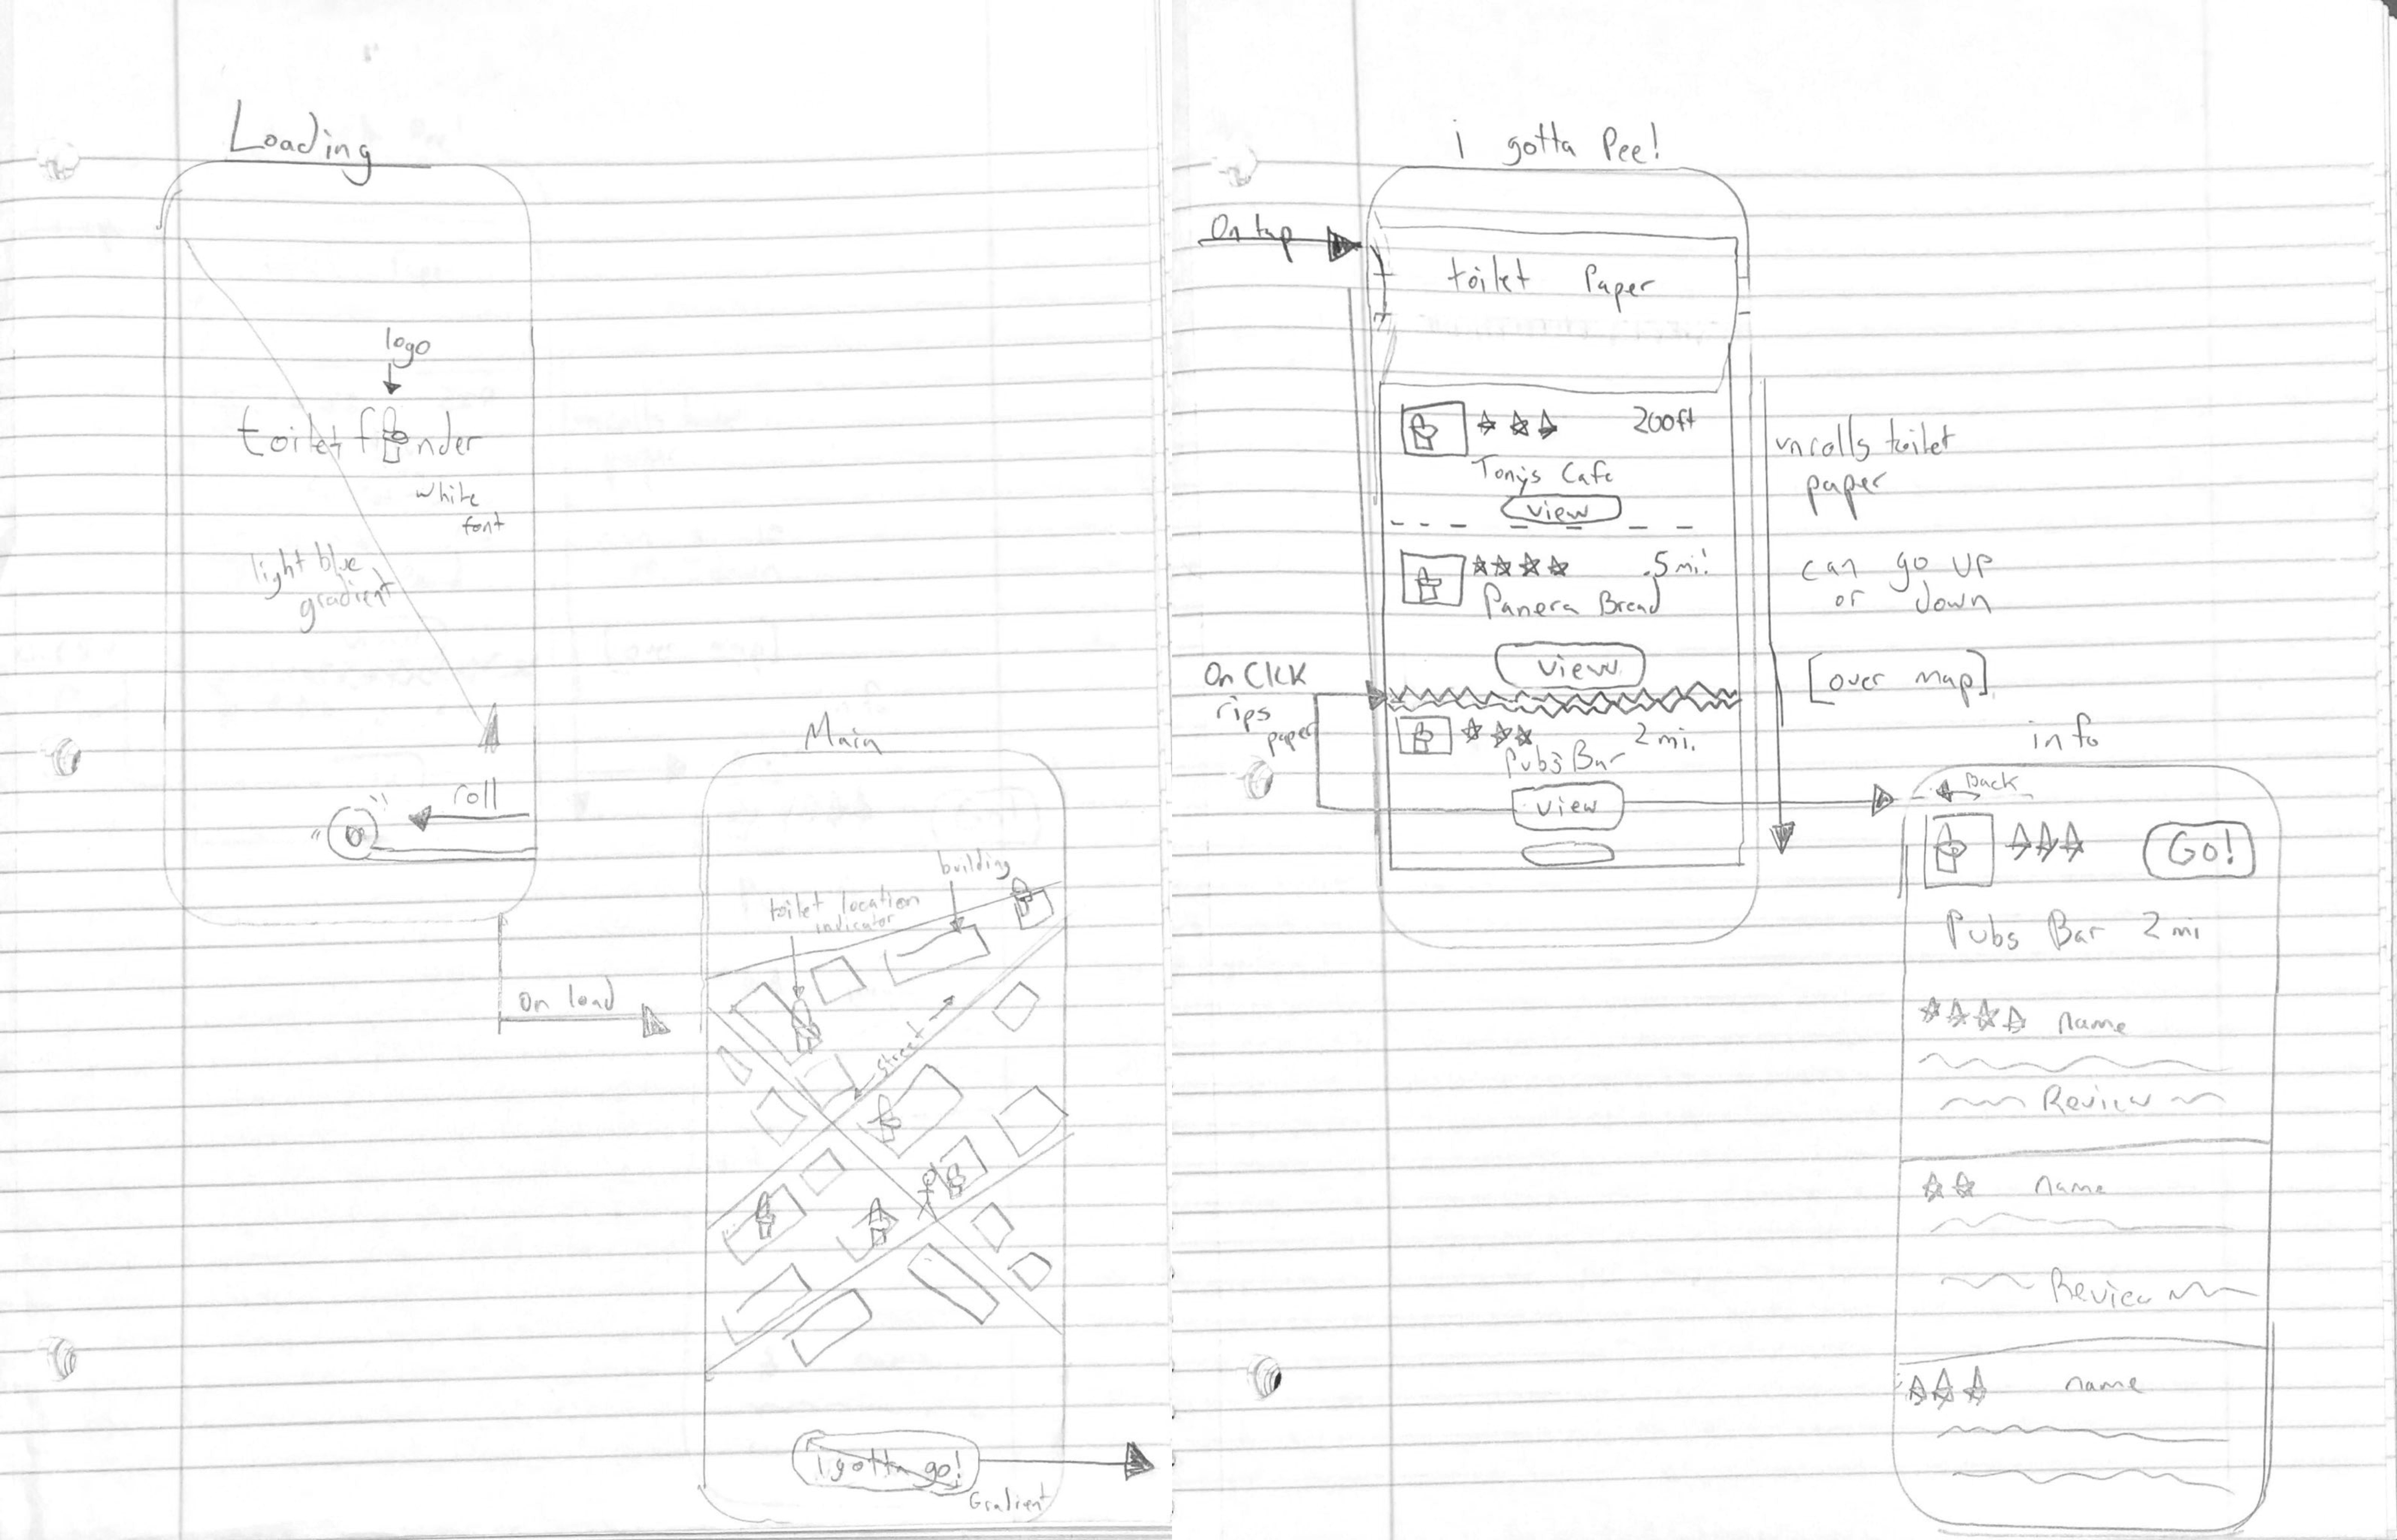 Loading
logo
toilet finder
white
font
light blue
gradient
roll
On load
Main
building
toilet location
indicator
street
i gotta go!
Gradient
i gotta Pee!
On tap
toilet Paper
200ft
Tonys Cafe
view
.5 mi.
Panera Bread
view
On Clck
rips
paper
2 mi.
Pubs Bar
view
unrolls toilet
paper
can go up
or down
[over map]
info
Back
Go!
Pubs Bar 2 mi
name
Review
name
Review
name